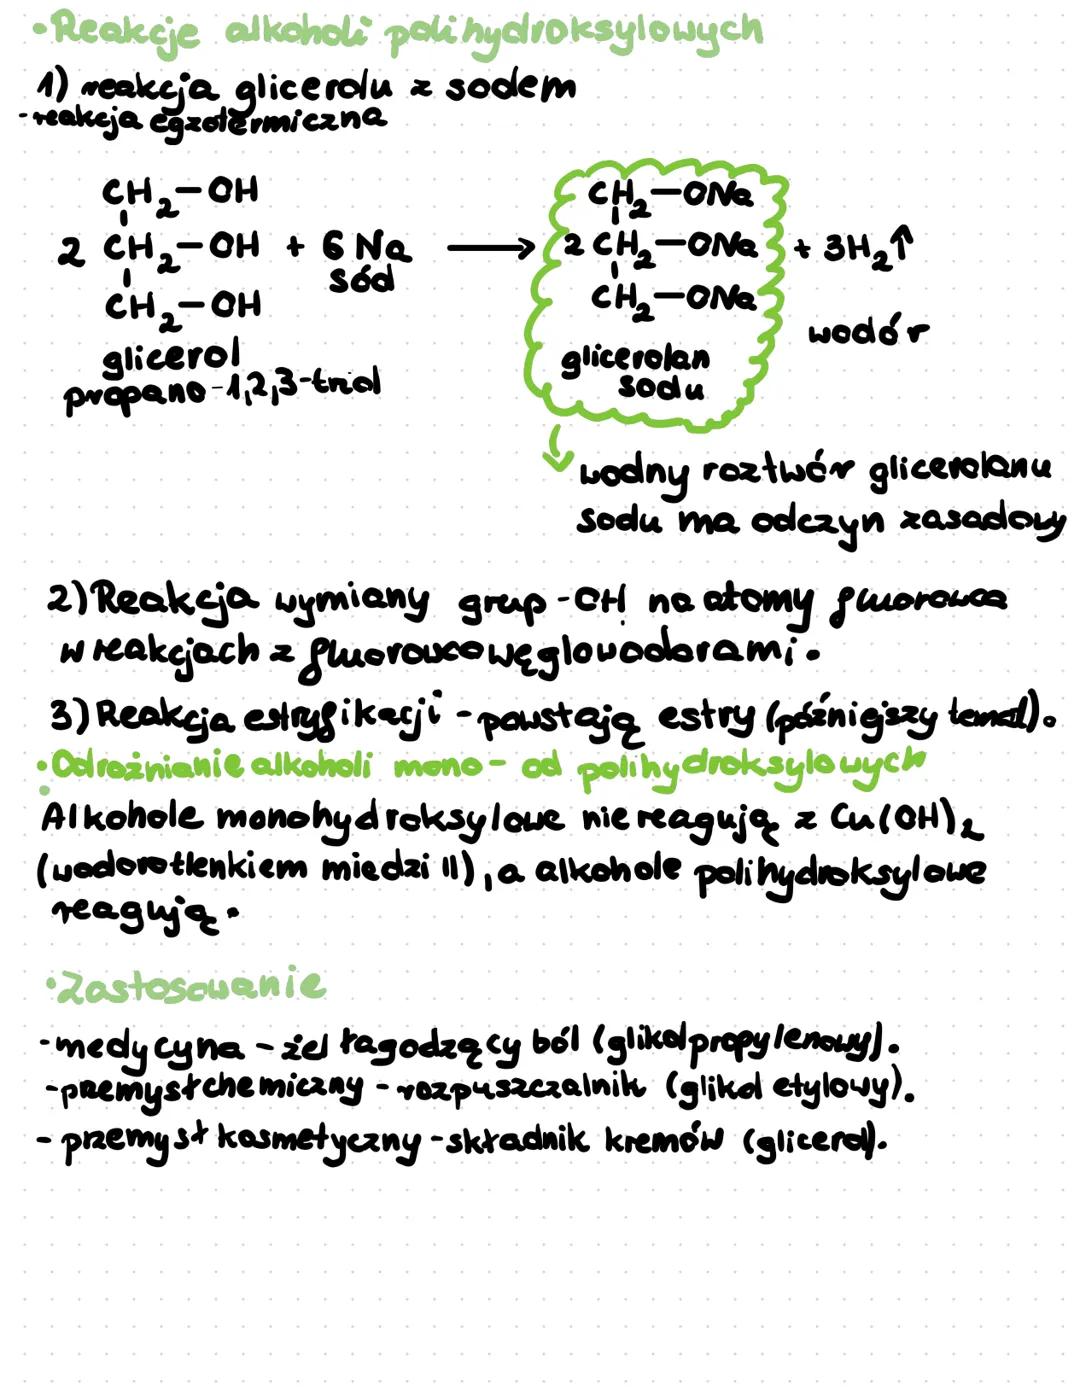 •Reakcje alkoholi polihydroksylowych
1) reakcja glicerolu z sodem
-reakcja egzotermiczna
CH₂-OH
2 CH₂-OH + 6 Na
CH₂-OH
sód
glicerol
propano-1,2,3-triol
→
CH₂-ONa
2 CH₂-ONa
CH₂-ONa
glicerolan
sodu
+ 3H₂↑
wodór
↓ wodny roztwór glicerolanu
sodu ma odczyn zasadowy
2) Reakcja wymiany grup -OH na atomy fluorowca
w reakcjach z fluorowcowęglowodorami.
3) Reakcja estryfikacji - powstają estry (późniejszy temat).
•Odrożnianie alkoholi mono- od polihydroksylowych
Alkohole monohydroksylowe nie reagują z Cu(OH)₂
(wodorotlenkiem miedzi II), a alkohole polihydroksylowe
reagują.
•Zastosowanie
-medycyna - żel łagodzący ból (glikol propylenowy).
-przemysł chemiczny - rozpuszczalnik (glikol etylowy).
- przemysł kosmetyczny - składnik kremów (glicerol).